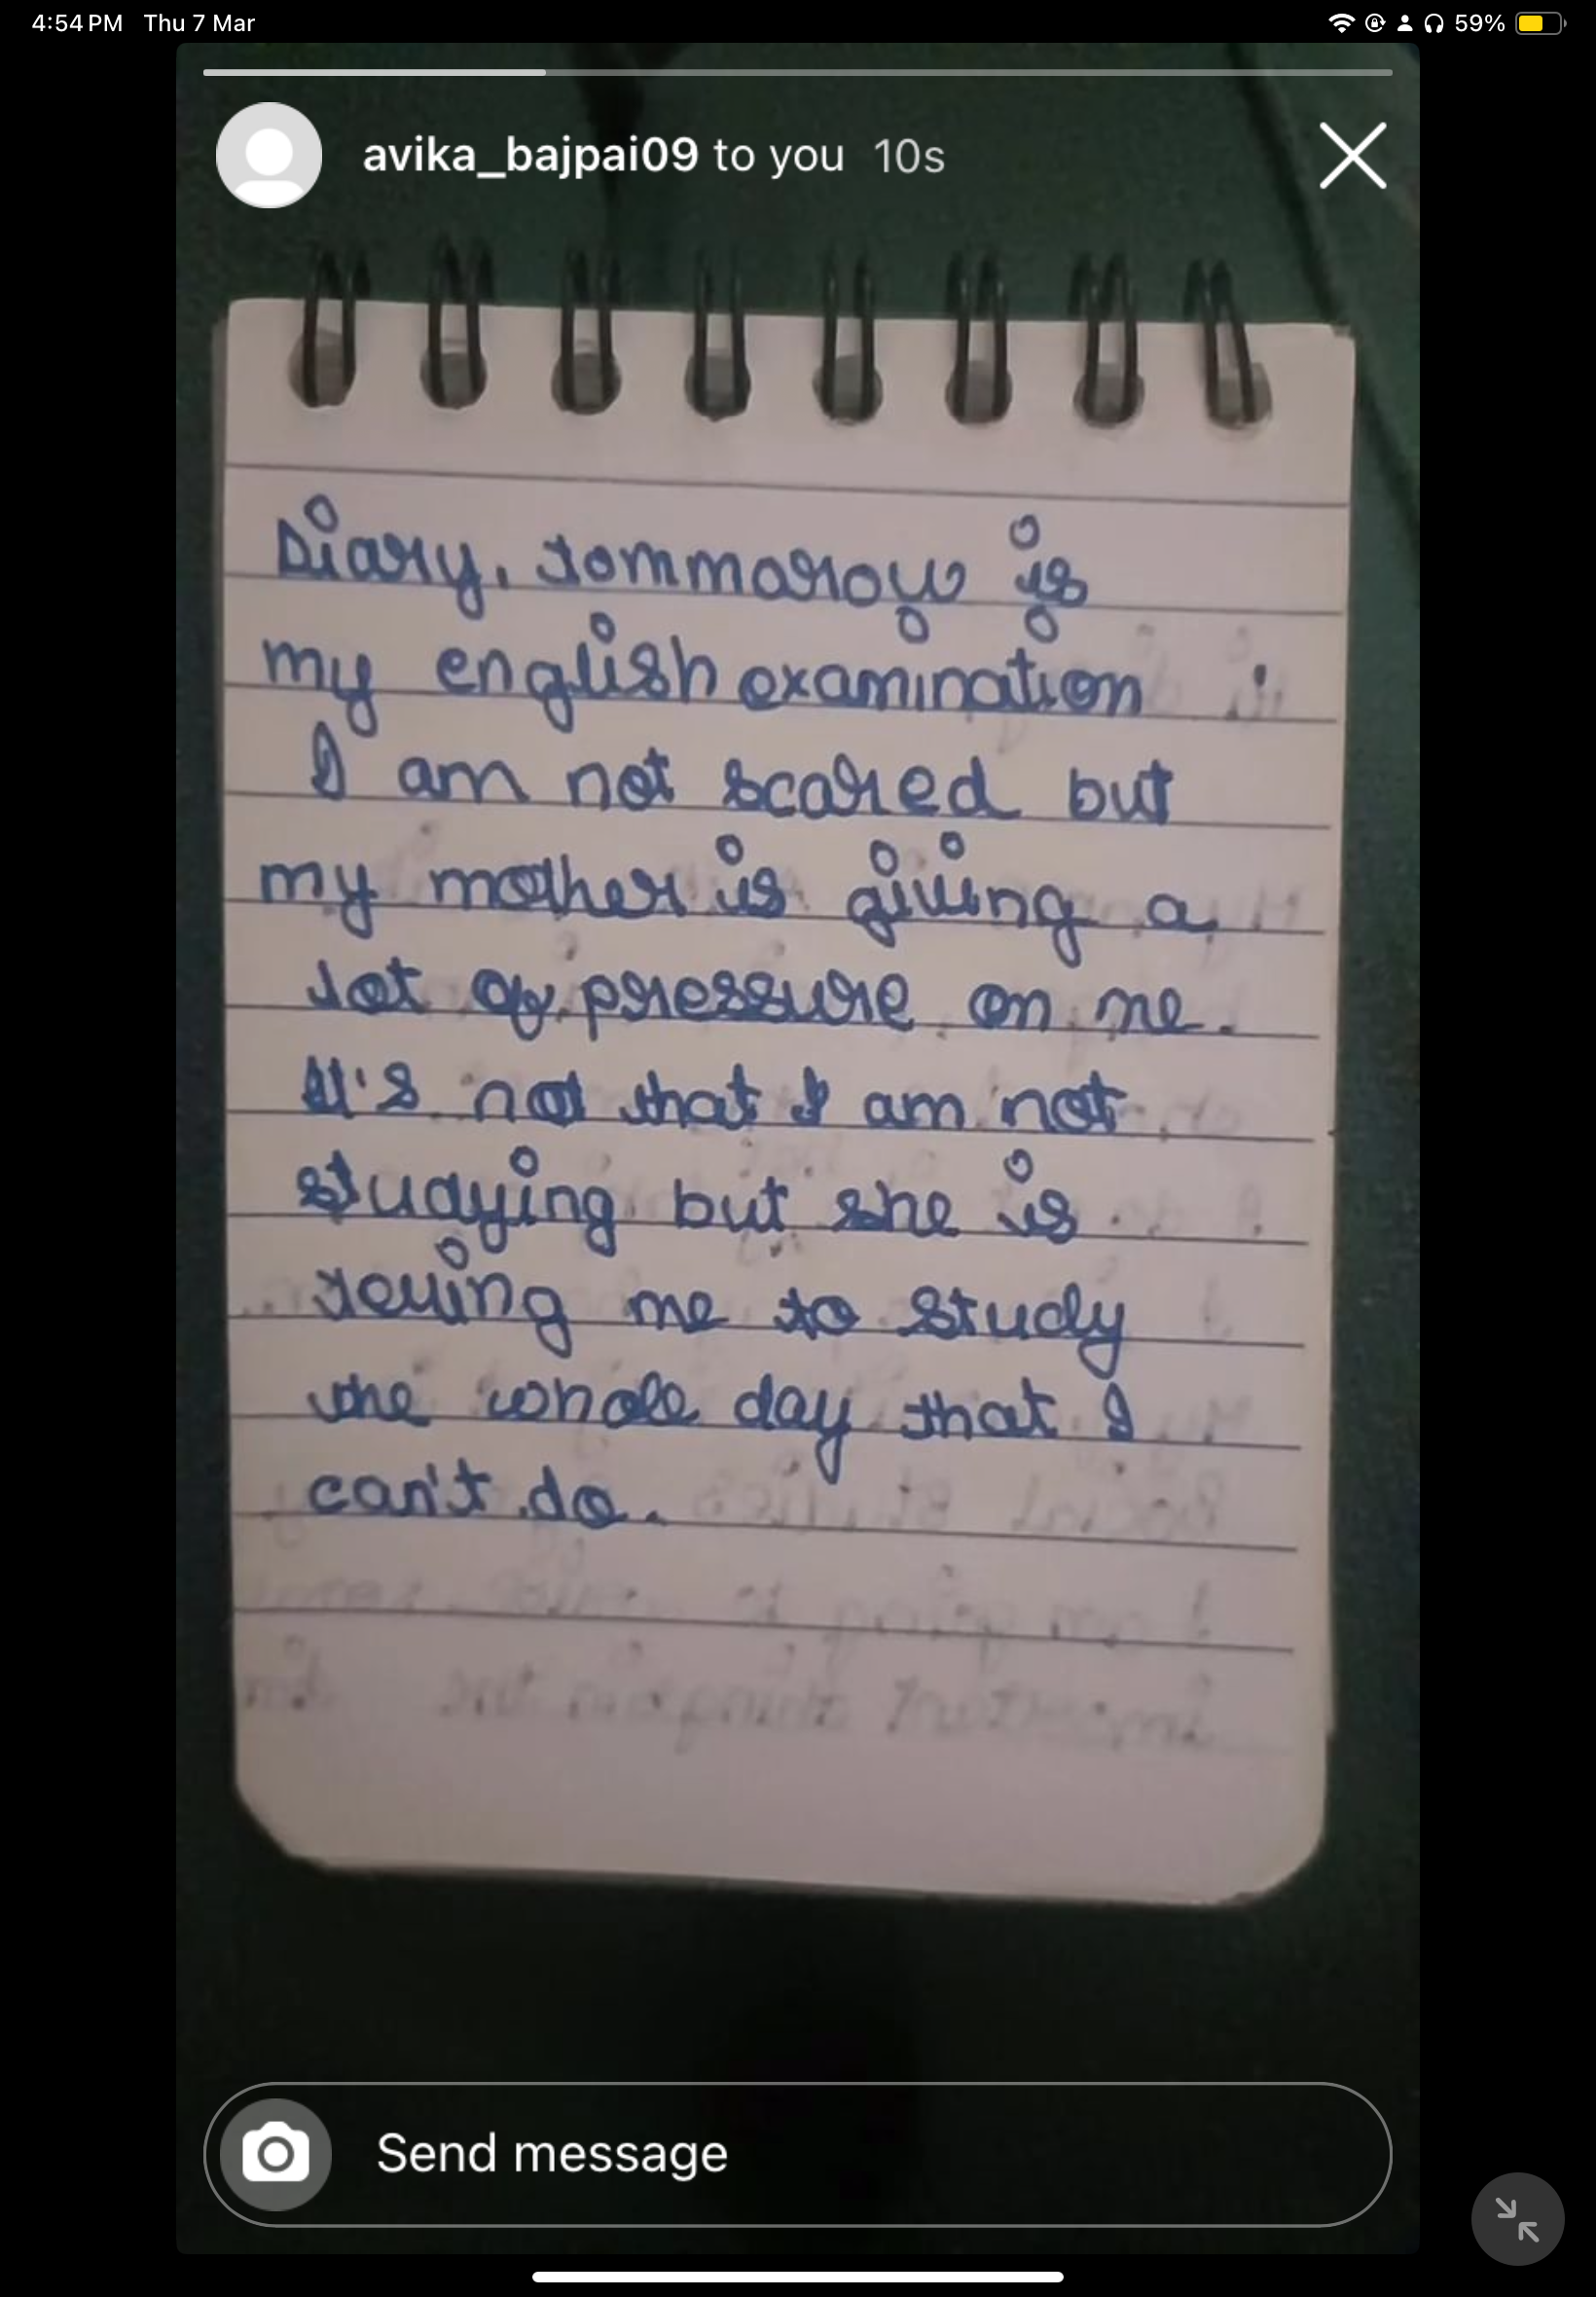 4:54 PM Thu 7 Mar 59%
avika_bajpai09 to you 10s
Diary, tommarow is
my english examination
I am not scared but
my mother is giving a
lot of pressure on me.
It's not that I am not
studying but she is
telling me to study
the whole day that I
can't do.
Send message